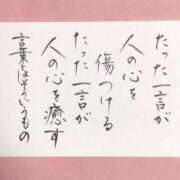 たった一言が
人の心を
傷つける
たった一言が
人の心を癒す
言葉とはそういうもの